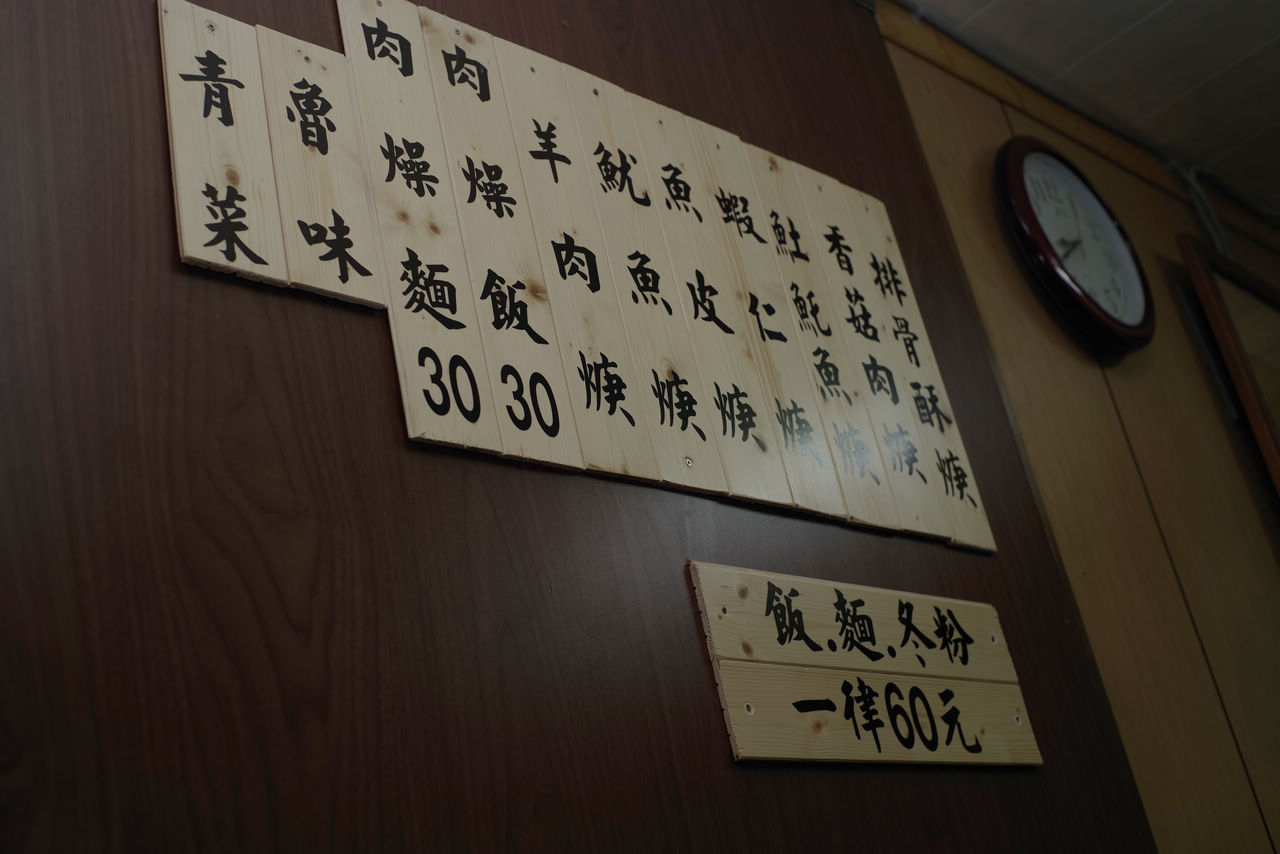 排骨酥焿
香菇肉焿
𩵚魠魚焿
蝦仁焿
魚皮焿
魷魚焿
羊肉焿
肉燥飯30
肉燥麵30
魯味
青菜
飯.麵.冬粉
一律60元